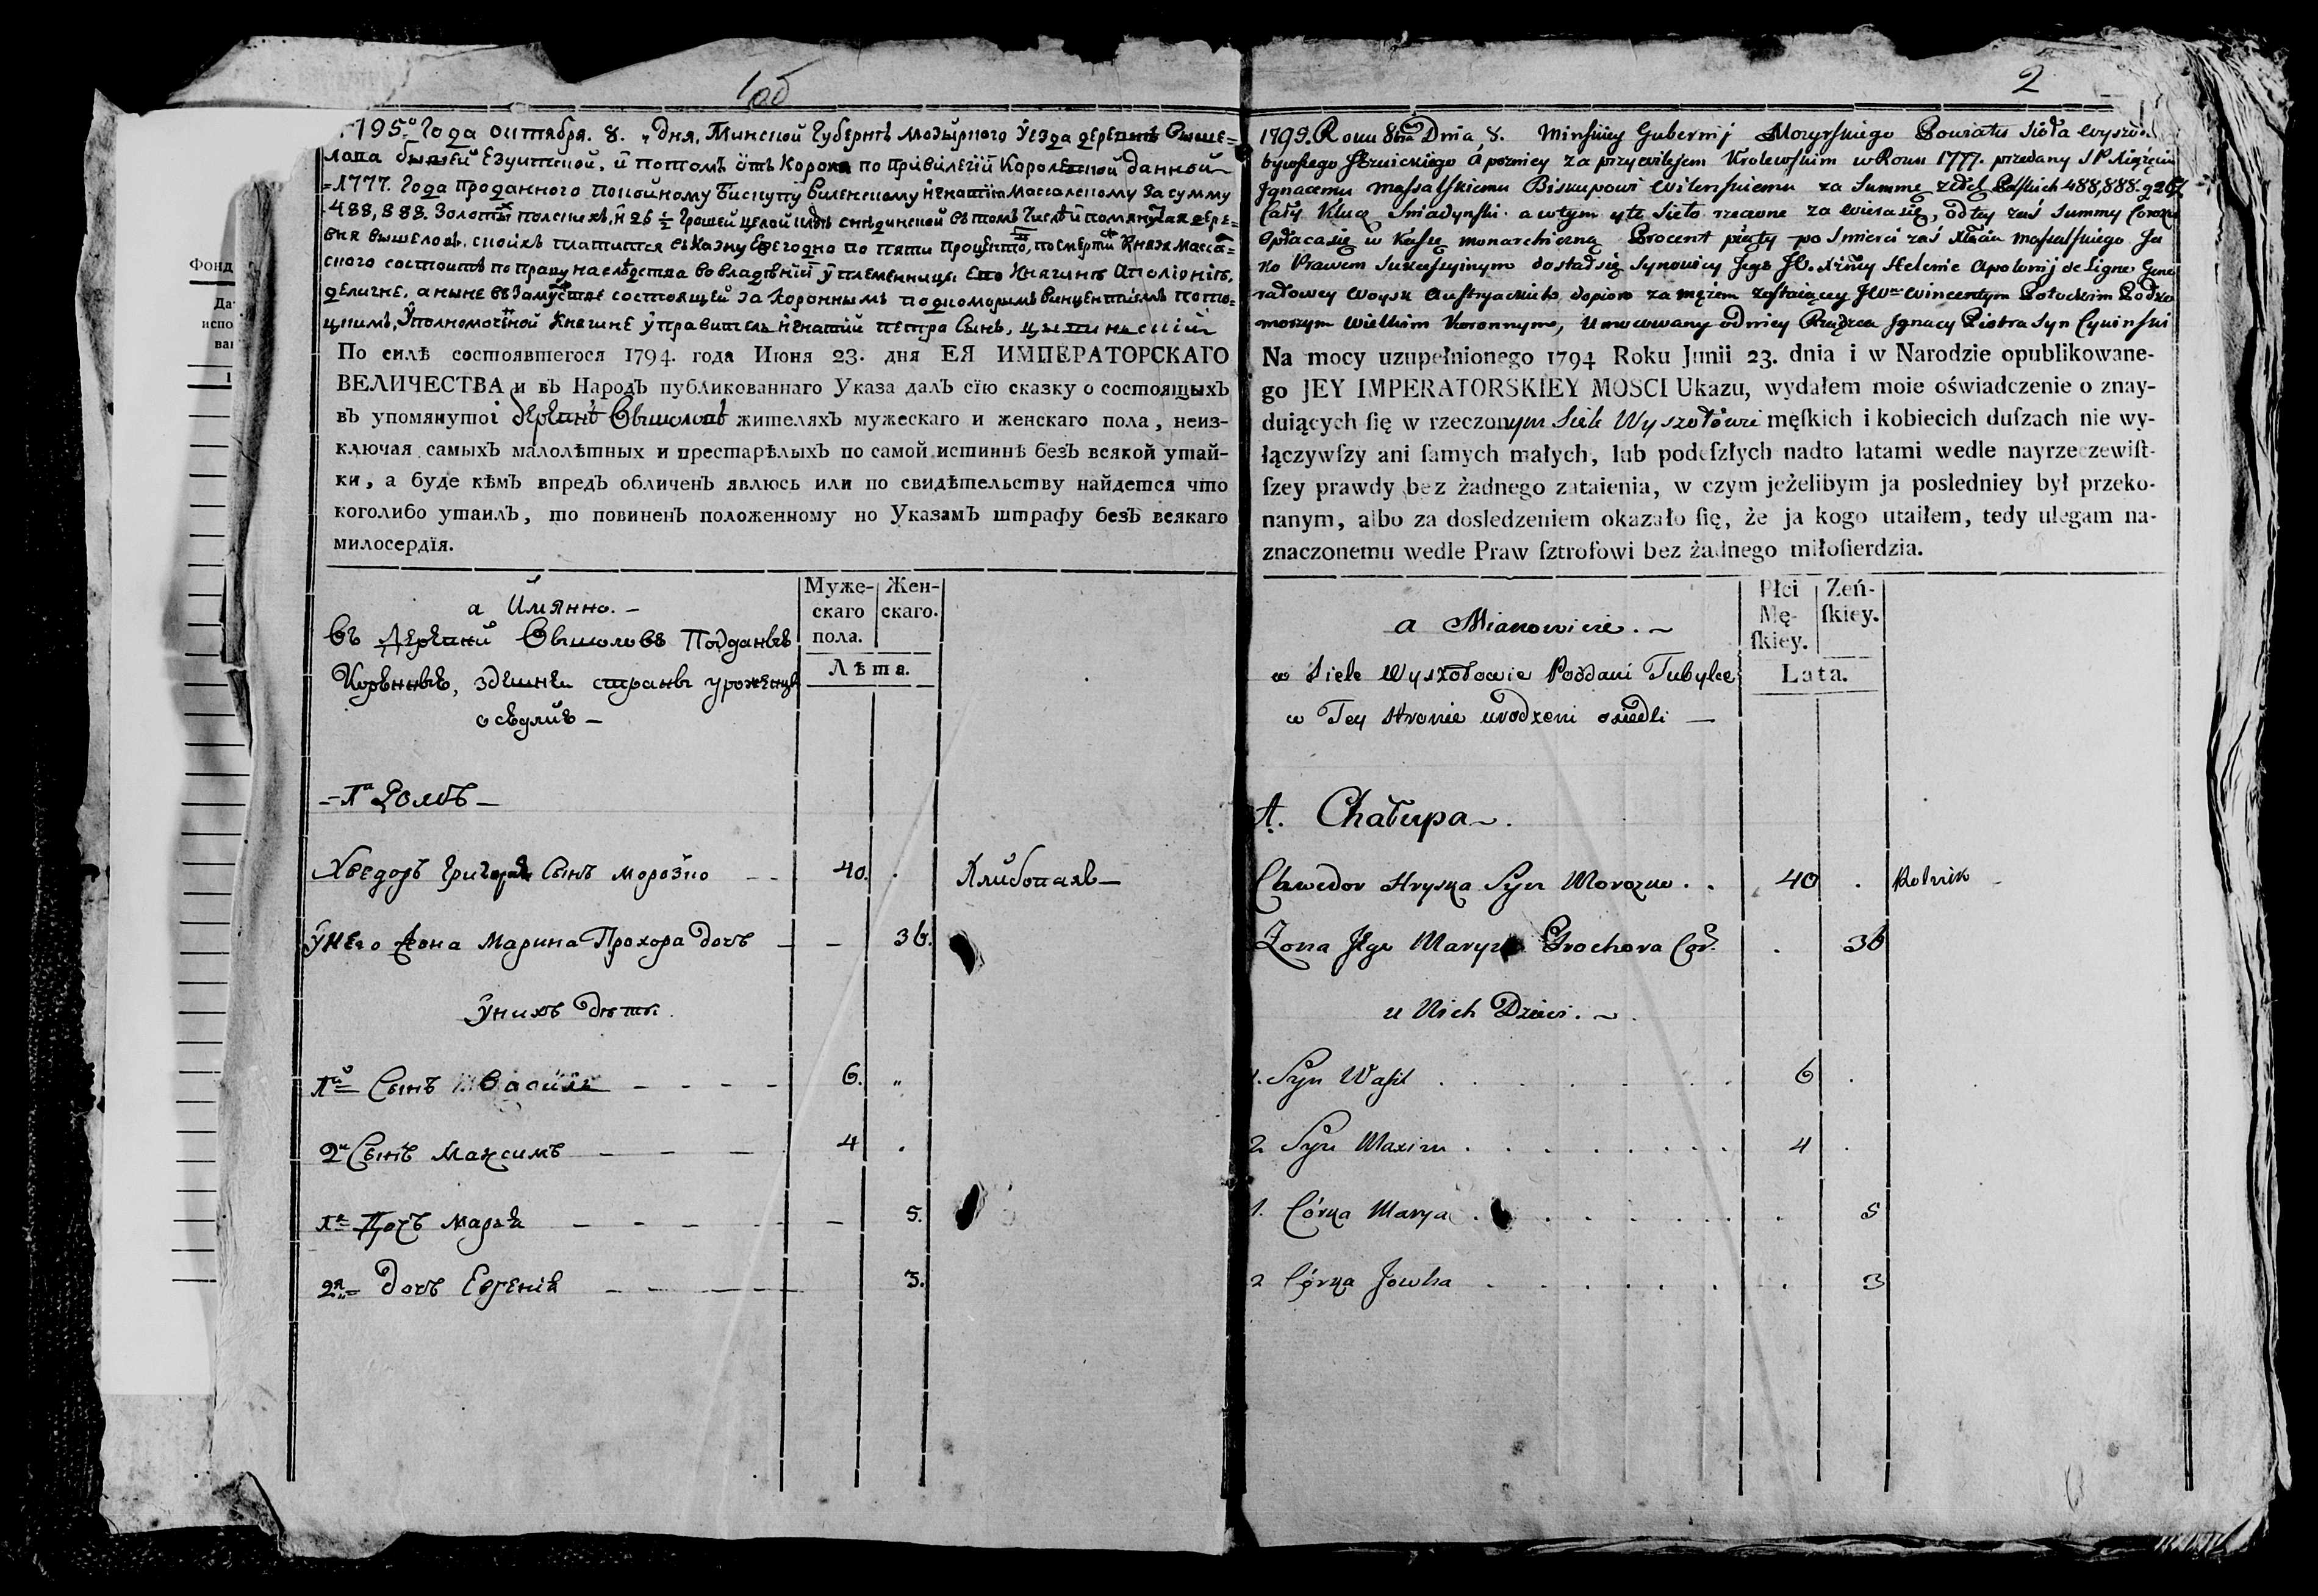 1об
1795.го Года октября. 8. дня, Минской Губернѣ Мозырного Уезда деревнѣ Выше-
лова бывшей Езуитской, и потомъ отъ Короны по привилегїи Королевской данной
1777. Года проданного покойному Бискупу Виленскому Игнатїю Массалскому за сумму
488,888. Золотыхъ полскихъ, и 26 ½ Грошей целой ключъ снядинской вътомъ числѣ и помянутая дере-
вня вышеловъ, съкоихъ платится въказну Ежегодно по пяти процентовъ, по смерти Князя Масса-
ского состоитъ по праву наслѣдства во владѣнїи у племенницы Его Княгинѣ Аполїонїи,
делигне, а ныне въ замуствѣ состоящей за Короннымъ подкоморымъ Винцентїемъ Пото-
цкимъ, Уполномоченой Княгинѣ управитель Игнатїй петра Сынъ,
По силѣ состоявшегося 1794. года Июня 23. дня ЕЯ ИМПЕРАТОРСКАГО
ВЕЛИЧЕСТВА и въ Народъ публикованнаго Указа далъ сїю сказку о состоящыхъ
въ упомянутоі деревнѣ Вышоловѣ жителяхъ мужескаго и женскаго пола, неиз-
ключая самыхъ малолѣтныхъ и престарѣлыхъ по самой истиннѣ безъ всякой утай-
ки, а буде кѣмъ впредъ обличенъ явлюсь или по свидѣтельству найдется что
коголибо утаилъ, то повиненъ положенному по Указамъ штрафу безъ всякаго
милосердїя.
а Имянно. —
въ Деревни Вышоловѣ Подданыѣ
Коренныѣ, здешней страны уроженцы
оседлиѣ —
Муже-
скаго
пола.
Жен-
скаго.
Лѣта.
1й Домъ —
Хведоръ Григорія Сынъ Морозко — 40. . Хлибопаль —
Унего Жена Марина Прохора дочъ — — 36.
Унихъ дѣти.
1й Сынъ Василь — — — — 6. „
2й Сынъ Максимъ — — — 4 .
1я Дочъ Марья — — — — — 5.
2я Дочъ Евгенія — — — — 3.
2
1795. Roku 8bra Dnia, 8. Minskiey Gubernij Mozyrskiego Powiatu Sioła Wyszoł.
bywszego Jezuickiego a pozniey za przywilejem Krolewskim w Roku 1777. przedany S P. Xiążęciu
Jgnacemu Massalskiemu Biskupowi Wilenskiemu za Summę Polskich 488,888. g 26½
Cały Klucz Sniadynski. a wtym y te Sioło rzeczone za wiera się, od tey zaś Summy Coroczn
Opłaca się w Kassę monarchiczną Procent piąty po Smierci zaś Massalskiego Ja
ko Prawem Sukcessyinym dostał się Synowicy Jego JO. Xżnie Helenie Apolonij de Ligne Gene
rałowey Woysk Austryackich dopioro za męzem zostaiącey JWm Wincentym Potockim Podko
morzym Wielkim Koronnym, Umocowany od niey Rządca Jgnacy Piotra Syn
Na mocy uzupełnionego 1794 Roku Junii 23. dnia i w Narodzie opublikowane-
go JEY IMPERATORSKIEY MOSCI Ukazu, wydałem moie oświadczenie o znay-
duiących ſię w rzeczonym Siele Wyszołowie męſkich i kobiecich duſzach nie wy-
łączywſzy ani ſamych małych, lub podeſzłych nadto latami wedle nayrzeczewiſt-
ſzey prawdy bez żadnego zataienia, w czym jeżelibym ja posledniey był przeko-
nanym, albo za dosledzeniem okazało ſię, że ja kogo utaiłem, tedy ulegam na-
znaczonemu wedle Praw ſztrofowi bez żadnego miłoſierdzia.
a Mianowicie. ~
w Siele Wyszołowie Poddani Tubylce
w Tey stronie urodzeni osiedli —
Płci
Mę-
ſkiey.
Zeń-
ſkiey.
Lata.
1. Chałupa ~.
Chwedor Hryszka Syn Morozko . . 40 . Rolnik
Zona Jego Maryna Prochora Cór. . 36
u Nich Dzieci. ~
1. Syn Wasil . . . . . . . 6 .
2 Syn Maxim . . . . . . . 4 .
1. Córka Marya . . . . . . . 5
2 Córka Jowha . . . . . . . 3